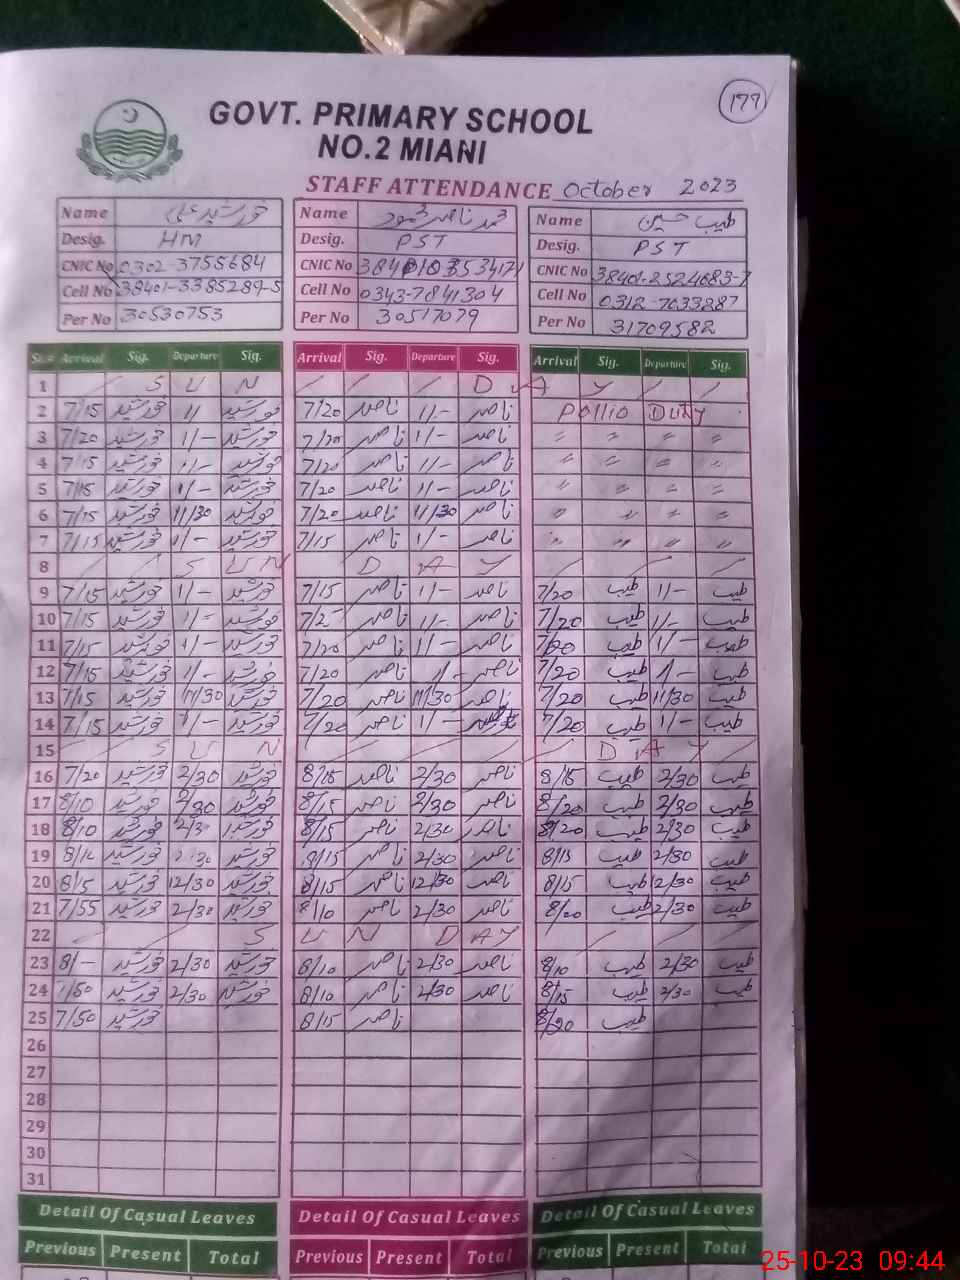 179
GOVT. PRIMARY SCHOOL
NO.2 MIANI
STAFF ATTENDANCE October 2023
Name خورشید علی Name محمد ناصر محمود Name طیب حسین
Desig. HM Desig. PST Desig. PST
CNIC No 0302-3755684 CNIC No CNIC No 38401-2524683-7
Cell No 38401-3385289-5 Cell No 0343-7841304 Cell No 0312-7033287
Per No 30530753 Per No 30517079 Per No 31709582
Sr.# Arrival Sig. Departure Sig. Arrival Sig. Departure Sig. Arrival Sig. Departure Sig.
1 S U N D A Y
2 7/15 خورشید 1/ خورشید 7/20 ناصر 1/- ناصر Pollio Duty
3 7/20 خورشید 1/- خورشید 7/20 ناصر 1/- ناصر " " " "
4 7/15 خورشید 1/- خورشید 7/20 ناصر 1/- ناصر " " " "
5 7/15 خورشید 1/- خورشید 7/20 ناصر 1/- ناصر " " " "
6 7/15 خورشید 11/30 خورشید 7/20 ناصر 11/30 ناصر " " " "
7 7/15 خورشید 1/- خورشید 7/15 ناصر 1/- ناصر " " " "
8 S U N D A Y
9 7/15 خورشید 1/- خورشید 7/15 ناصر 1/- ناصر 7/20 طیب 1/- طیب
10 7/15 خورشید 1/- خورشید ناصر 1/- ناصر 7/20 طیب 1/- طیب
11 7/15 خورشید 1/- خورشید 7/20 ناصر 1/- ناصر 7/20 طیب 1/- طیب
12 7/15 خورشید 1/- خورشید 7/20 ناصر 1/- ناصر 7/20 طیب 1/- طیب
13 7/15 خورشید 11/30 خورشید 7/20 ناصر 11/30 ناصر 7/20 طیب 11/30 طیب
14 7/15 خورشید 1/- خورشید 7/20 ناصر 1/- 7/20 طیب 1/- طیب
15 S U N D A Y
16 7/20 خورشید 2/30 خورشید 8/15 ناصر 2/30 ناصر 8/15 طیب 2/30 طیب
17 8/10 خورشید 2/30 خورشید 8/15 ناصر 2/30 ناصر 8/20 طیب 2/30 طیب
18 8/10 خورشید 2/30 خورشید 8/15 ناصر 2/30 ناصر 8/20 طیب 2/30 طیب
19 خورشید 2/30 خورشید 8/15 ناصر 2/30 ناصر 8/15 طیب 2/30 طیب
20 8/5 خورشید 12/30 خورشید 8/15 ناصر 12/30 ناصر 8/15 طیب 12/30 طیب
21 7/55 خورشید 2/30 خورشید 8/10 ناصر 2/30 ناصر 8/00 طیب 2/30 طیب
22 S U N D A Y
23 8/- خورشید 2/30 خورشید 8/10 ناصر 2/30 ناصر 8/10 طیب 2/30 طیب
24 7/50 خورشید 2/30 خورشید 8/10 ناصر 2/30 ناصر 8/15 طیب 2/30 طیب
25 7/50 خورشید 8/15 ناصر 8/20 طیب
26
27
28
29
30
31
Detail Of Casual Leaves Detail Of Casual Leaves Detail Of Casual Leaves
Previous Present Total Previous Present Total Previous Present Total
25-10-23 09:44